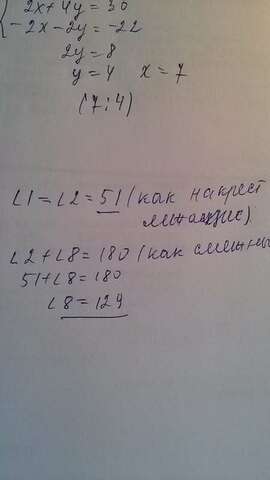 2x+4y=30
-2x-2y=-22
2y=8
y=4 x=7
(7;4)
∠1=∠2=51 (как накрест
лежащие)
∠2+∠8=180 (как смежны
51+∠8=180
∠8=129